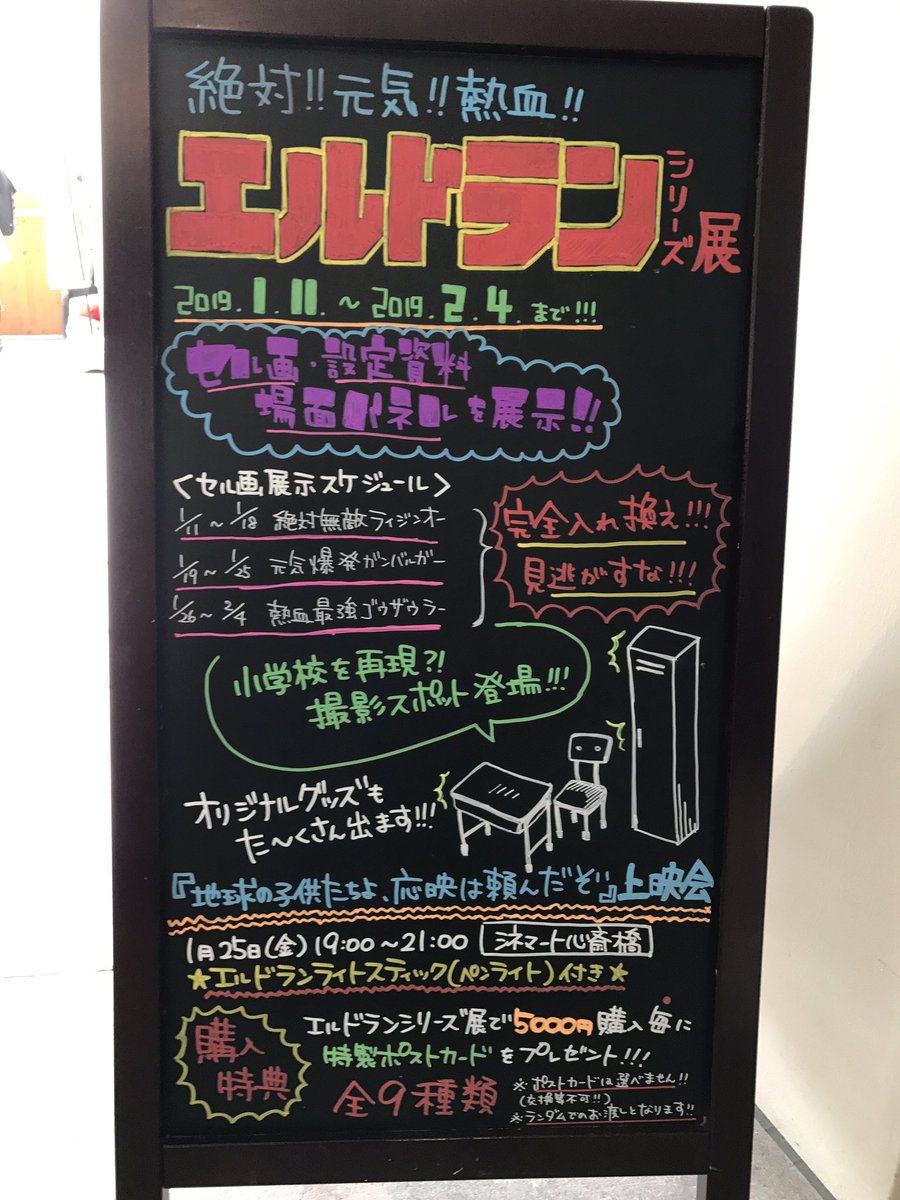 絶対!!元気!!熱血!!
エルドランシリーズ展
2019.1.11.～2019.2.4.まで!!!
セル画・設定資料
場面パネルを展示!!
〈セル画展示スケジュール〉
1/11～1/18 絶対無敵ライジンオー
1/19～1/25 元気爆発ガンバルガー
1/26～2/4 熱血最強ゴウザウラー
完全入れ換え!!!
見逃がすな!!!
小学校を再現?!
撮影スポット登場!!!
オリジナルグッズも
た～くさん出ます!!!
『地球の子供たちよ、応映は頼んだぞ』上映会
1月25日(金)19:00～21:00 シネマート心斎橋
★エルドランライトスティック(ペンライト)付き★
購入
特典
エルドランシリーズ展で5000円購入毎に
特製ポストカードをプレゼント!!!
全9種類
※ポストカードは選べません!!
(交換等不可!!)
※ランダムでのお渡しとなります!!